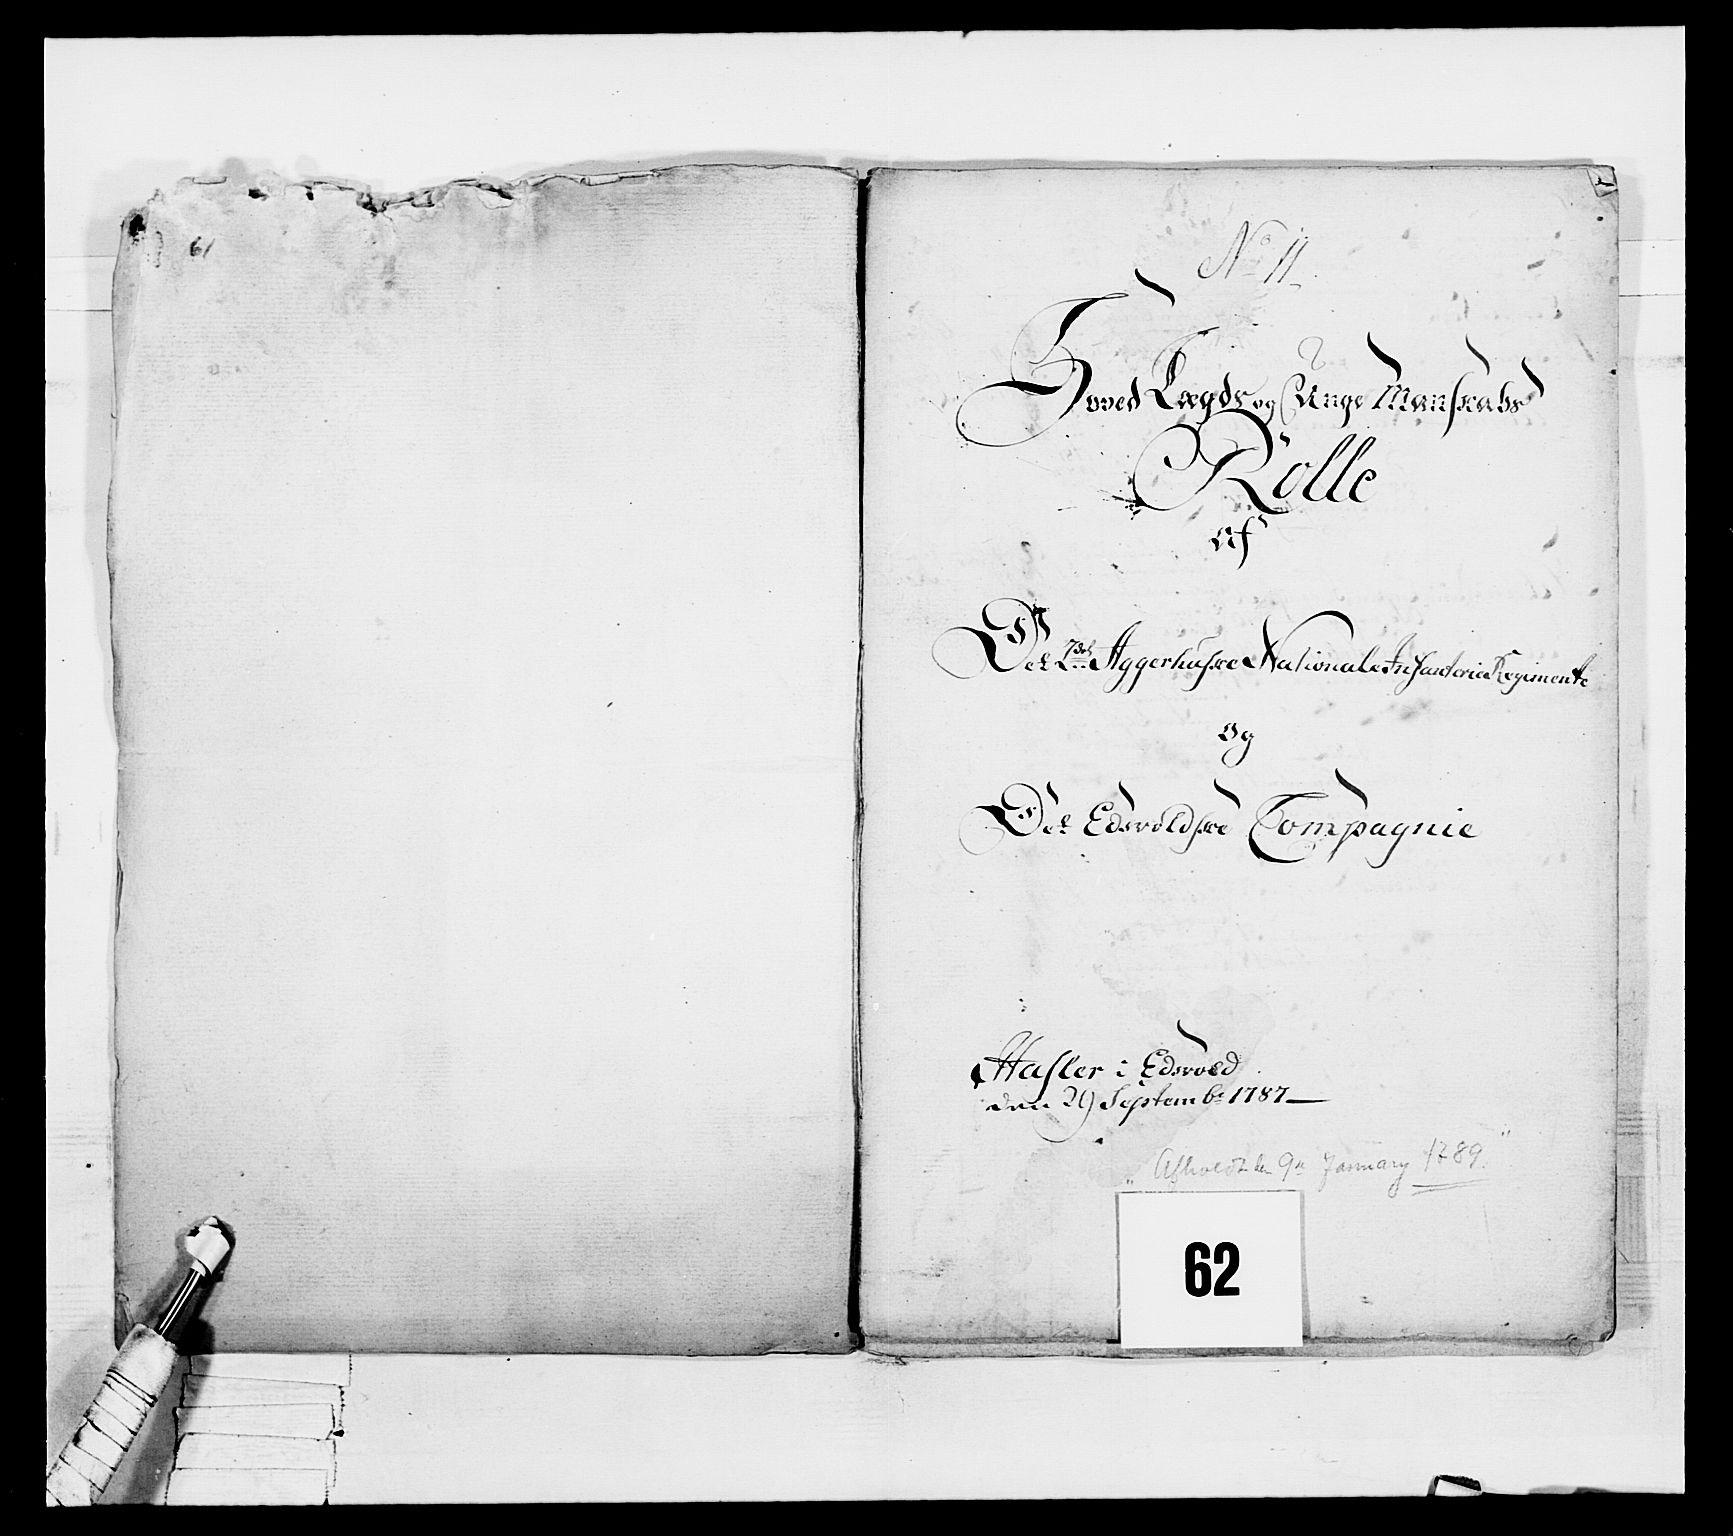 61
No 11
Hoved Lægds og Unge Manskabs
Rolle
af
Det 2det Aggerhusske Nationale Infanterie Regimente
og
Det Edsvoldske Compagnie
Hasler i Edsvold
den 29 Septembr 1787
"Afholdt den 9de January 1789."
62